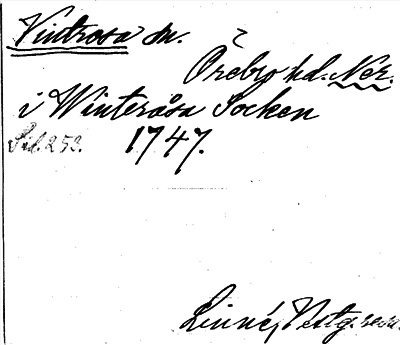 Vintrosa sn.
Örebro hd. Ner.
i Winteråsa Socken
Sid. 252. 1747.
Linné, Vestg. resa.